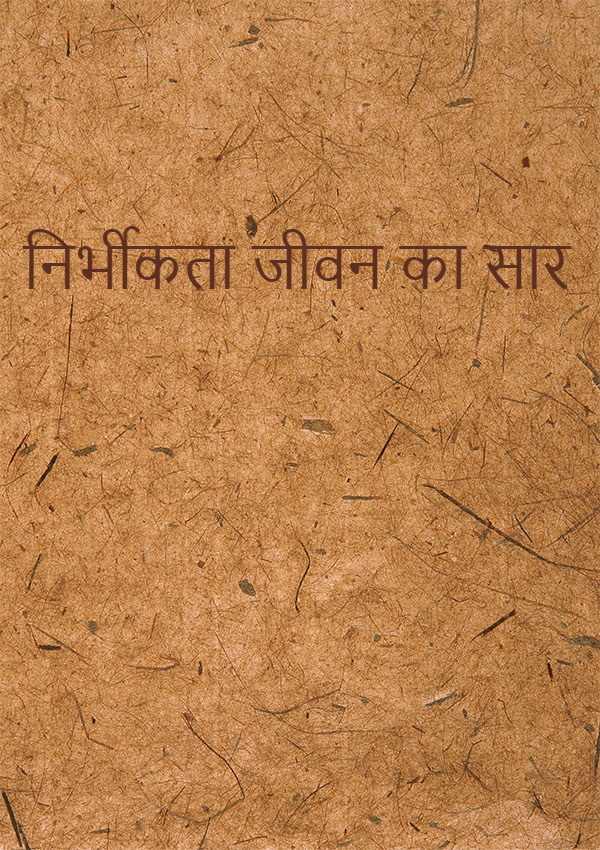 निर्भीकता जीवन का सार